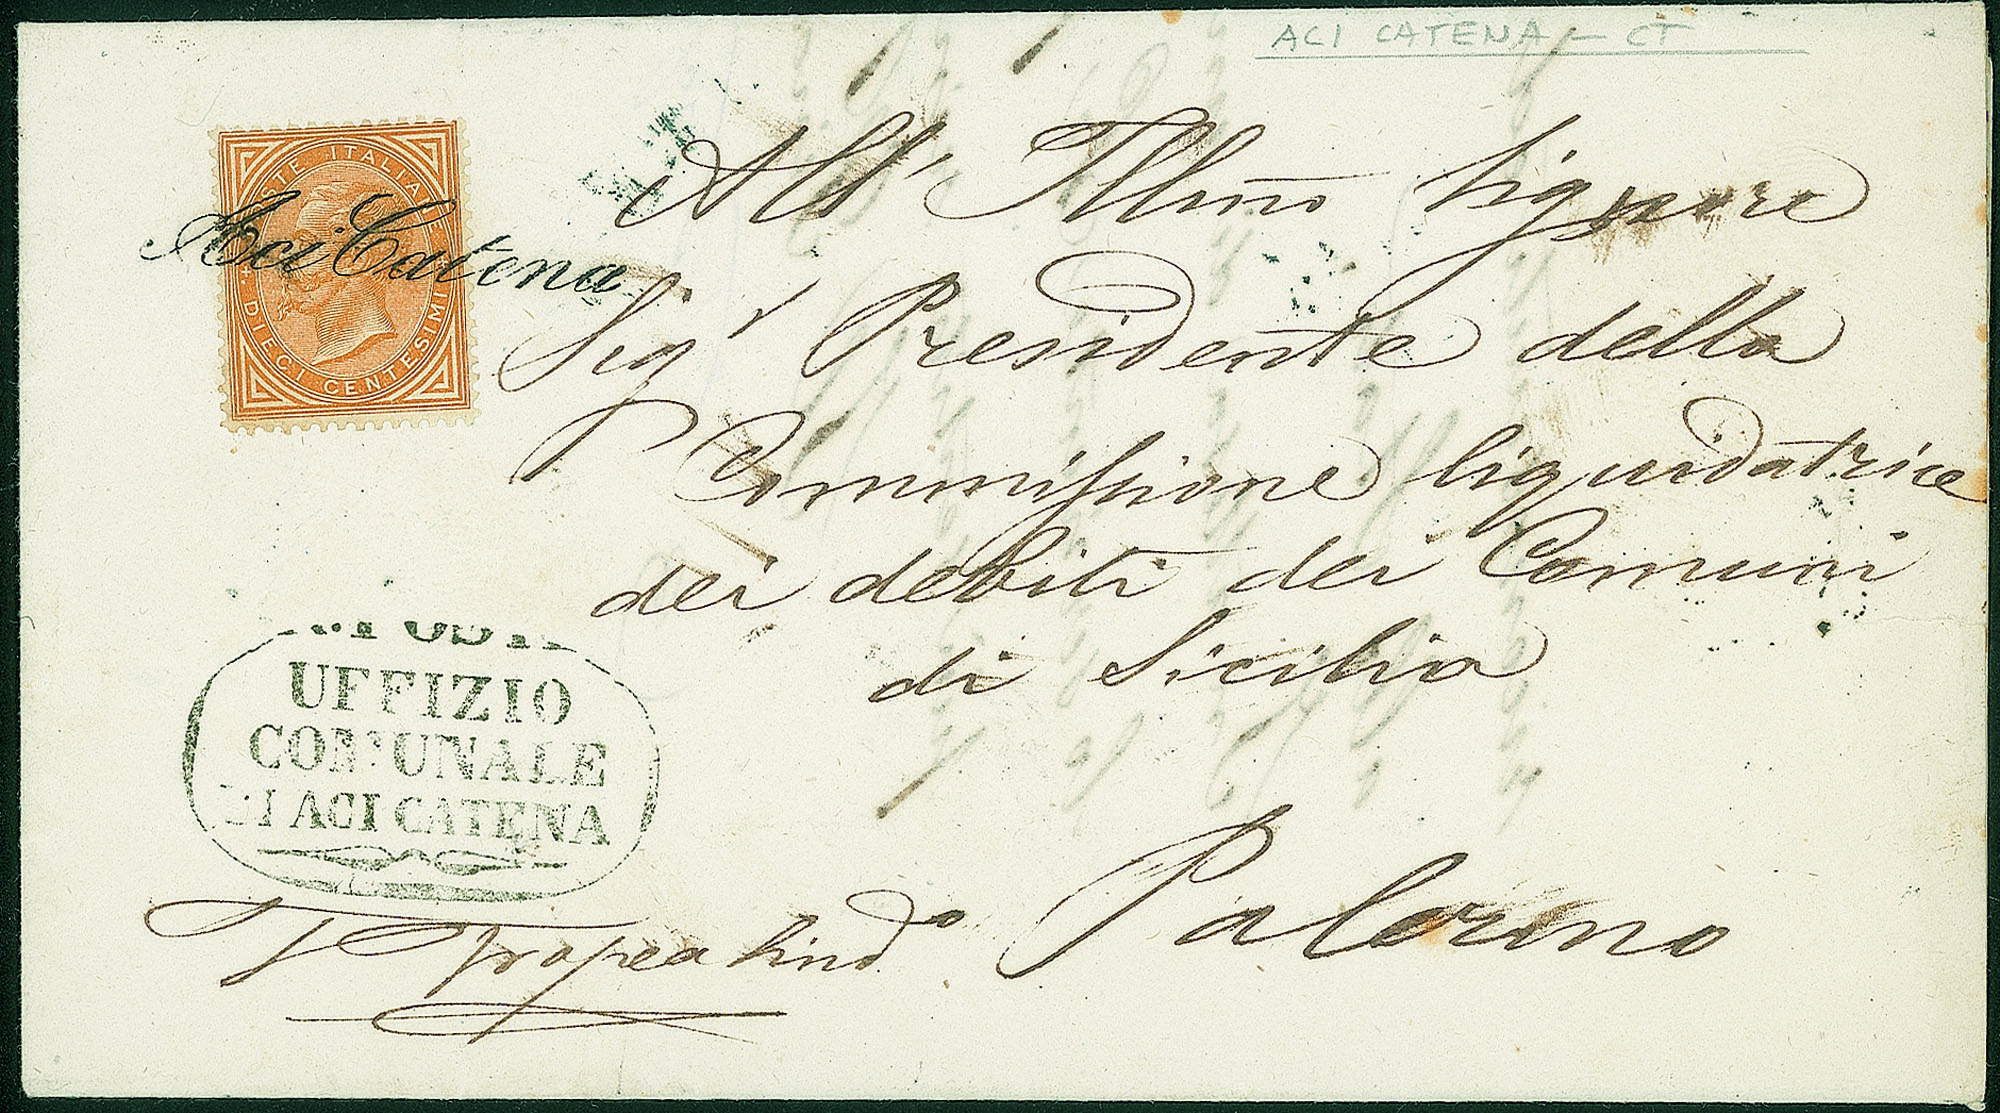 ACI CATENA - CT
POSTE ITALIANE
DIECI CENTESIMI 10
Aci Catena
All' Illmo Signore
Sigr Presidente della
Commissione liquidatrice
dei debiti dei Comuni
di Sicilia
Palermo
UFFIZIO
COMUNALE
DI ACI CATENA
Tropea Sindo